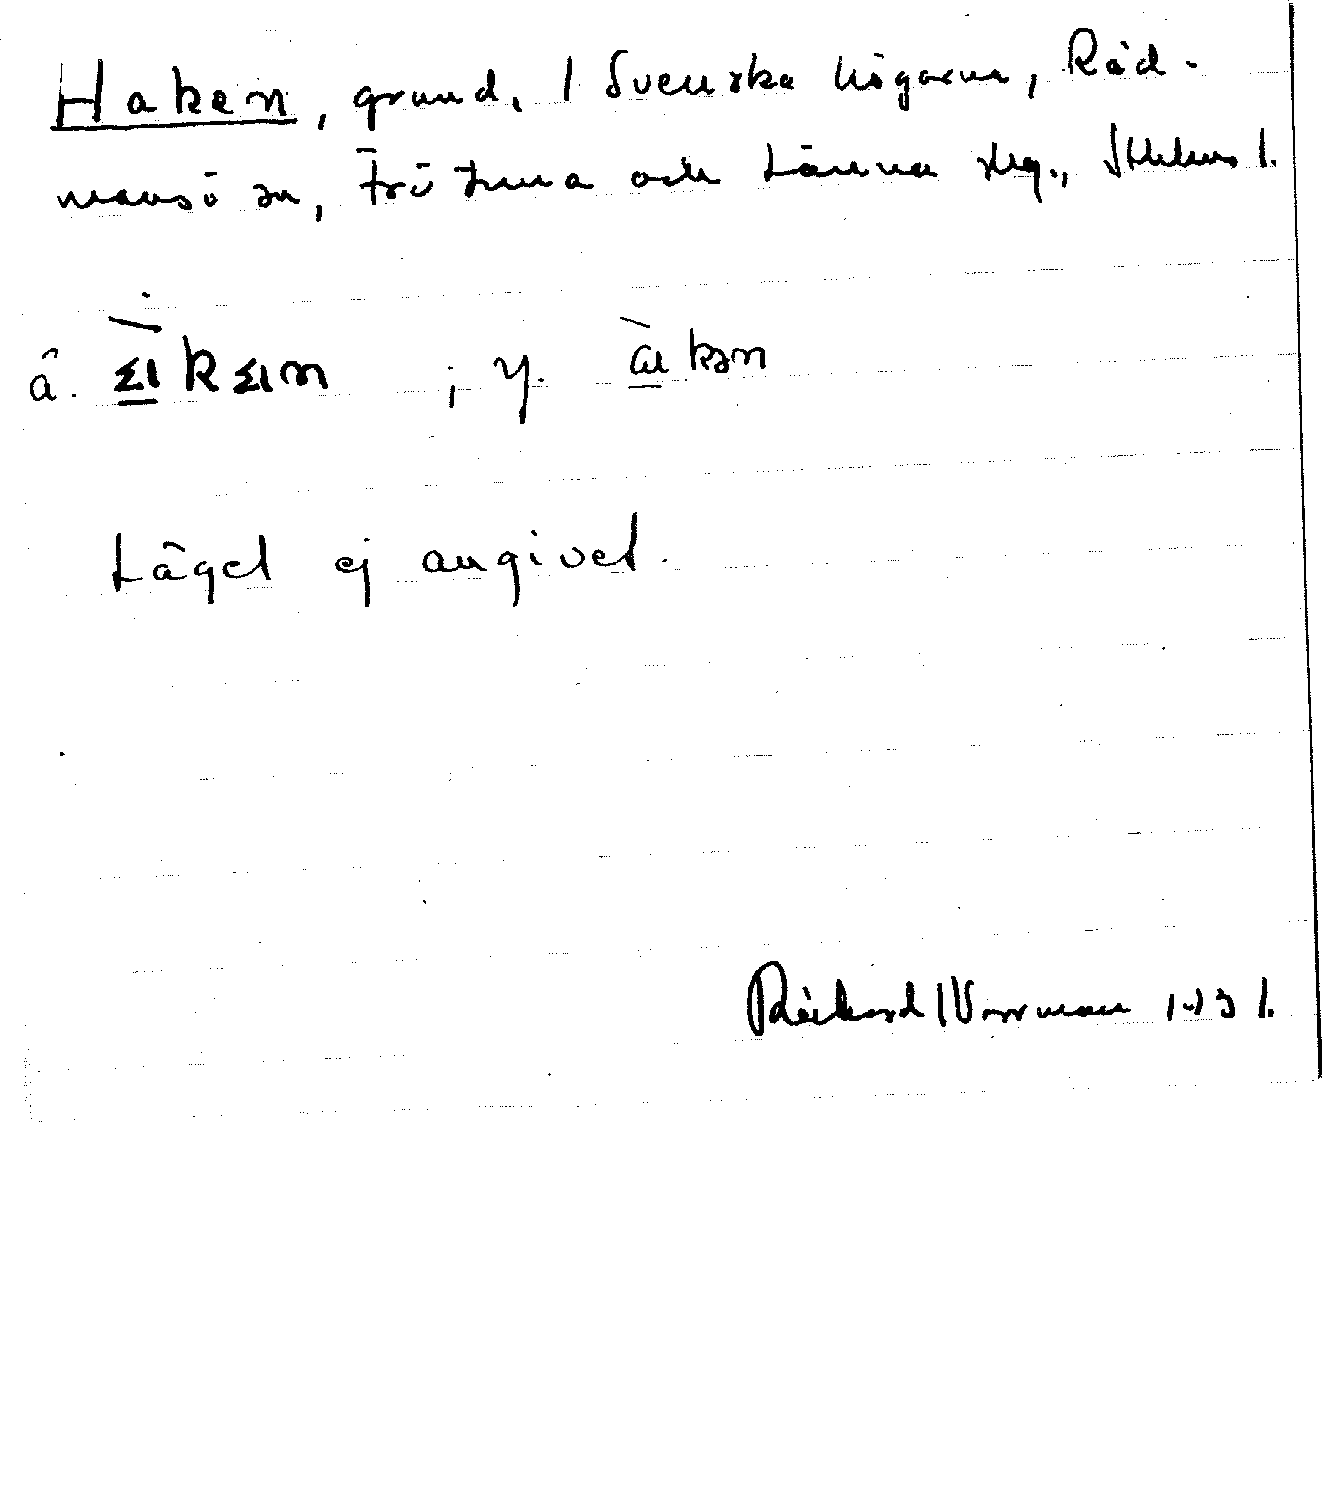 Haken, grund, i Svenska högarna, Råd-
mansö sn, Frötuna och Länna skg., Sthlms l.
ä. ; y.
Läget ej angivet.
Rickard Worrman